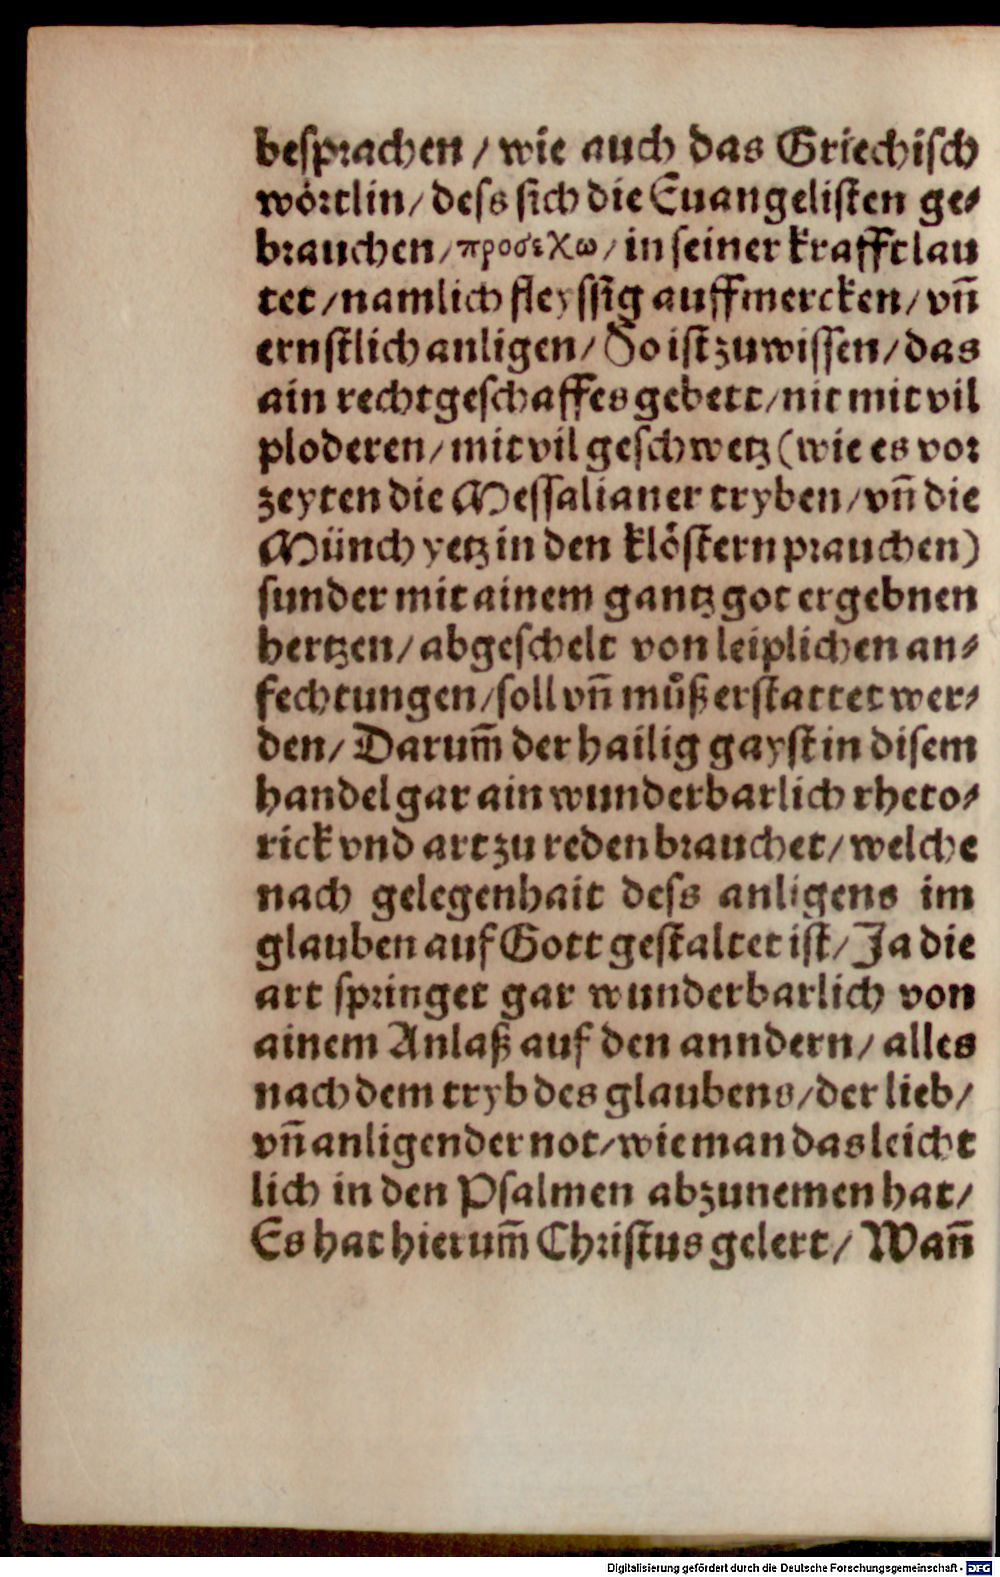 beſprachen / wie auch das Griechiſch
wörtlin / deſs ſich die Euangeliſten ge⸗
brauchen / προσεχω / in ſeiner krafft lau
tet / namlich fleyſſig auffmercken / vn̄
ernſtlich anligen / So iſt zuwiſſen / das
ain rechtgeſchaffes gebett / nit mit vil
ploderen / mit vil geſchwetz (wie es vor
zeyten die Meſſalianer tryben / vn̄ die
Münch yetz in den klöſtern prauchen)
ſunder mit ainem gantz got ergebnen
hertzen / abgeſchelt von leiplichen an⸗
fechtungen / ſoll vn̄ můß erſtattet wer⸗
den / Darum̄ der hailig gayſt in diſem
handel gar ain wunderbarlich rheto⸗
rick vnd art zu reden brauchet / welche
nach gelegenhait deſs anligens im
glauben auf Gott geſtaltet iſt / Ja die
art ſpringet gar wunderbarlich von
ainem Anlaß auf den anndern / alles
nach dem tryb des glaubens / der lieb /
vn̄ anligender not / wie man das leicht
lich in den Pſalmen abzunemen hat /
Es hat hierum̄ Chriſtus gelert / Wan̄
Digitalisierung gefördert durch die Deutsche Forschungsgemeinschaft - DFG